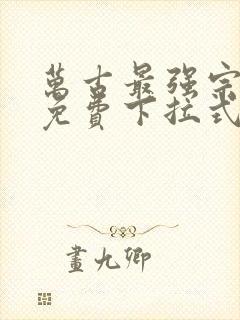 萬古最强宗
免費下拉式
畫九卿